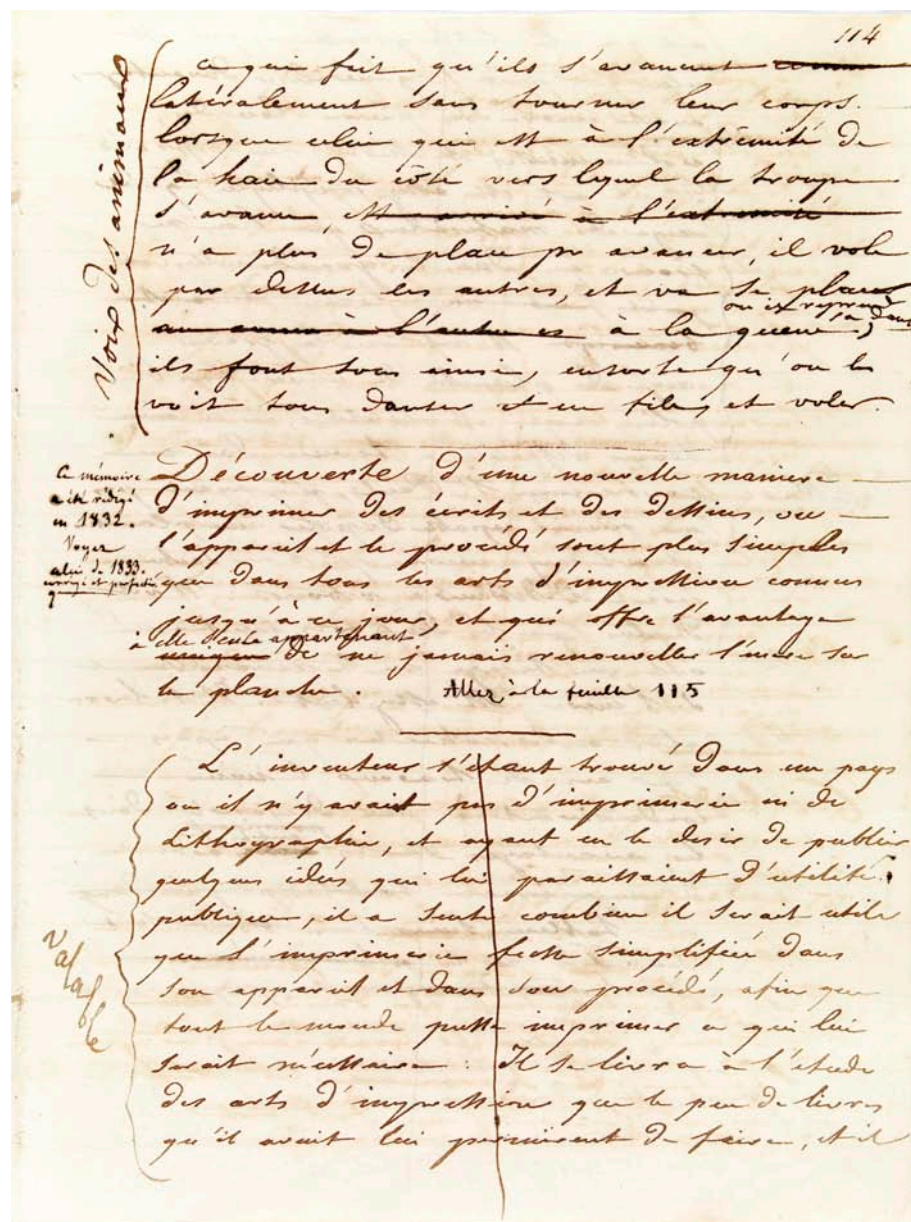 114
Voix des animaux
ce qui fait qu'ils s'avancent comme
latéralement sans tourner leur corps.
lorsque celui qui est à l'extrêmité de
la haie du côté vers lequel la troupe
s'avance, est arrivé à l'extremité
n'a plus de place pr avancer, il vole
par dessus les autres, et va se placer
à la queue;
ils font tous ainsi, ensorte qu'on les
voit tous danser et en files, et voler.
Ce mémoire
a été rédigé
en 1832.
Voyez
celui de 1833.
corrigé et perfectionné
Découverte d'une nouvelle maniere
d'imprimer des écrits et des dessins, ou
l'appareil et le procédé sont plus simples
que dans tous les arts d'impression connus
jusqu'à ce jour, et qui offre l'avantage
à elle seule appartenant
unique de ne jamais renouveller l'encre sur
la planche. Allez à la feuille 115
L'inventeur s'étant trouvé dans un pays
ou il n'y avait pas d'imprimerie ni de
Lithographie, et ayant eu le desir de publier
quelques idées qui lui paraissaient d'utilité
publique, il a senti combien il serait utile
que l'imprimerie fusse simplifiée dans
son appareil et dans son procédé, afin que
tout le monde pusse imprimer ce qui lui
serait nécessaire : Il se livra à l'etude
des arts d'impression que le peu de livres
qu'il avait lui permirent de faire, et il